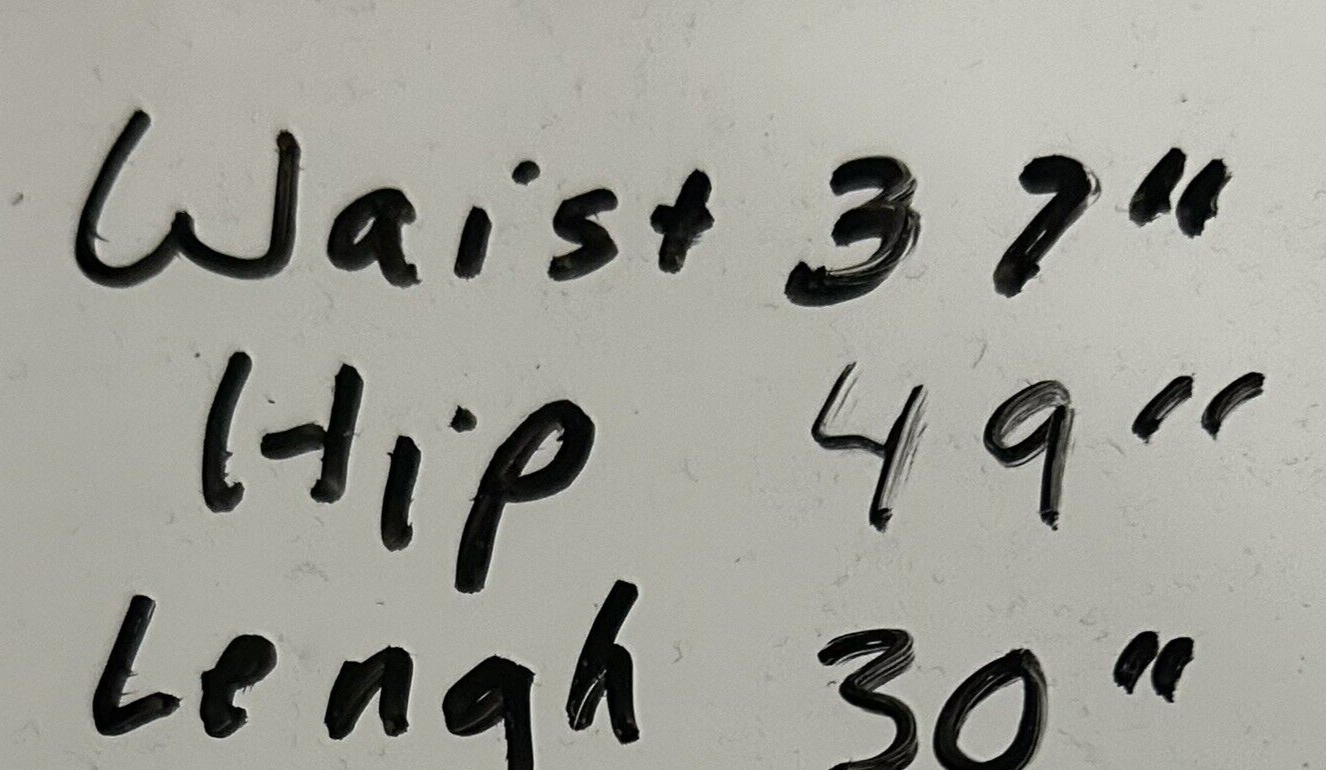 Waist 37"
Hip 49"
Lengh 30"